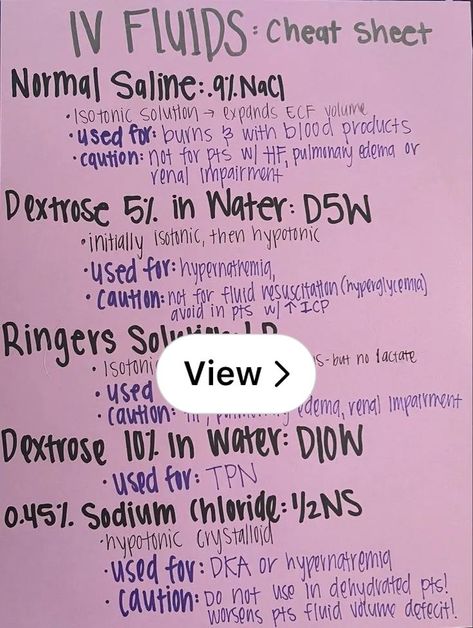 IV FLUIDS: Cheat Sheet
Normal Saline: .9% NaCl
• Isotonic solution → expands ECF volume
• used for: burns & with blood products
• caution: not for pts w/ HF, pulmonary edema or
renal impairment
Dextrose 5% in Water: D5W
• initially isotonic, then hypotonic
• used for: hypernatremia,
• caution: not for fluid resuscitation (hyperglycemia)
avoid in pts w/ ↑ ICP
Ringers
• Isotonic -but no lactate
View >
• used
• caution: edema, renal impairment
Dextrose 10% in Water: D10W
• used for: TPN
0.45% Sodium Chloride: 1/2NS
• hypotonic crystalloid
• used for: DKA or hypernatremia
• caution: Do not use in dehydrated pts!
worsens pts fluid volume defecit!